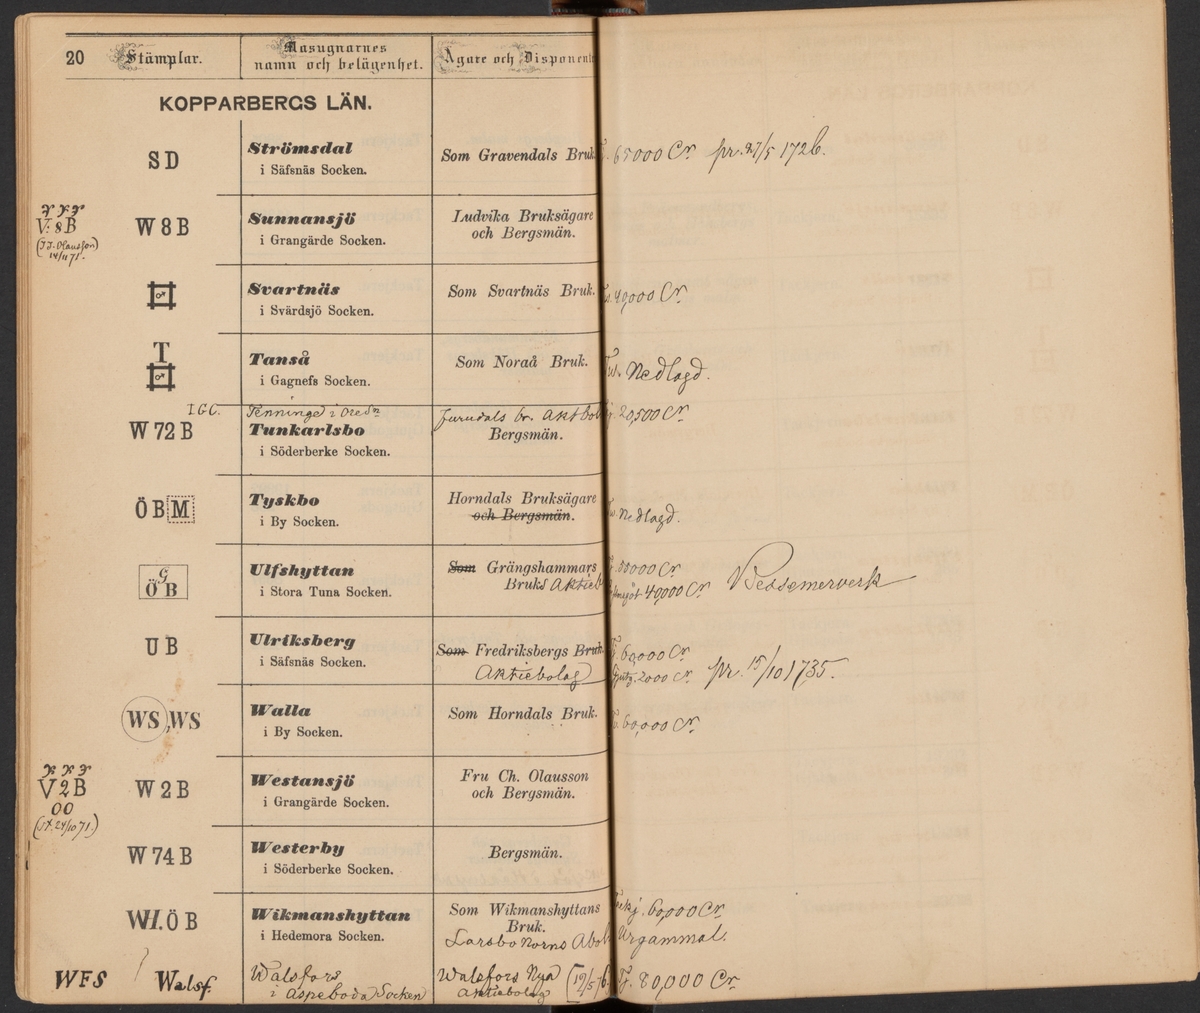 20 Stämplar. Masugnarnes namn och belägenhet. Ägare och Disponent
KOPPARBERGS LÄN.
S D Strömsdal Som Gravendals Bruk. 65000 Cr pr. 27/5 1726.
i Säfsnäs Socken.
V: 8 B W 8 B Sunnansjö Ludvika Bruksägare
(J.J. Olausson) i Grangärde Socken. och Bergsmän.
14/11 71.
Svartnäs Som Svartnäs Bruk. 40,000 Cr
i Svärdsjö Socken.
T Tanså Som Noraå Bruk. Nedlagd.
i Gagnefs Socken.
I.G.C. Tenninge i Ore Sn Furudals br. Aktbol 20,500 Cr
W 72 B Tunkarlsbo Bergsmän.
i Söderberke Socken.
Ö B M Tyskbo Horndals Bruksägare
i By Socken. och Bergsmän. Nedlagd.
G
Ö B Ulfshyttan Som Grängshammars 50000 Cr
i Stora Tuna Socken. Bruks Aktieb 40,000 Cr Bessemerverk
U B Ulriksberg Som Fredriksbergs Bruk. 60,000 Cr
i Säfsnäs Socken. Aktiebolag 2000 Cr pr. 15/10 1735.
WS, WS Walla Som Horndals Bruk. 60,000 Cr
i By Socken.
V 2 B W 2 B Westansjö Fru Ch. Olausson
OO i Grangärde Socken. och Bergsmän.
24/10 71.)
W 74 B Westerby Bergsmän.
i Söderberke Socken.
WH. Ö B Wikmanshyttan Som Wikmanshyttans 60,000 Cr
i Hedemora Socken. Bruk.
Larsbo Norns Abol Urgammal.
WFS Walsf. Walsfors Walsfors Nya (19/5 76 Tj. 80,000 Cr
i Aspeboda Socken Aktiebolag